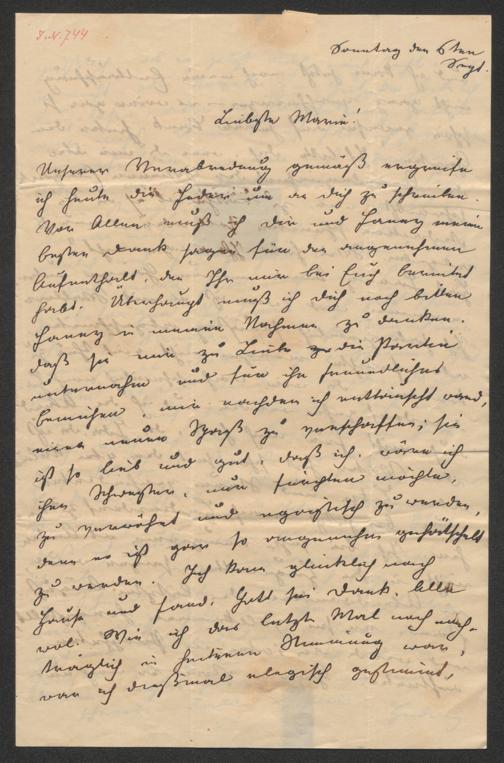 I.N. 744
Sonntag den 6ten
Sept.
Liebste Marie!
Unserer Verabredung gemäß ergreife
ich heute die Feder um an dich zu schreiben.
Vor Allem muß ich Dir und Fanny meinen
besten Dank sagen für den angenehmen
Aufenthalt, den Ihr mir bei Euch bereitet
habt. Überhaupt muß ich dich noch bitten
Fanny in meinem Nahmen zu danken.
daß sie mir zu Liebe die Partie
unternahm und für ihr freundliches
bemühen, mir nachdem ich enttäuscht ward,
einen neuen Spaß zu verschaffen; sie
ist so lieb und gut, daß ich, wäre ich
ihre Schwester, nur fürchten möchte,
zu verwöhnt und egoistisch zu werden,
denn es ist gar so angenehm gehätschelt
zu werden. Ich kam glücklich nach
Hause und fand, Gott sei Dank, Alle
wol. Wie ich das letzte Mal noch nach-
träglich in heiterer Stimmung war,
war ich dießmal elegisch gestimmt,